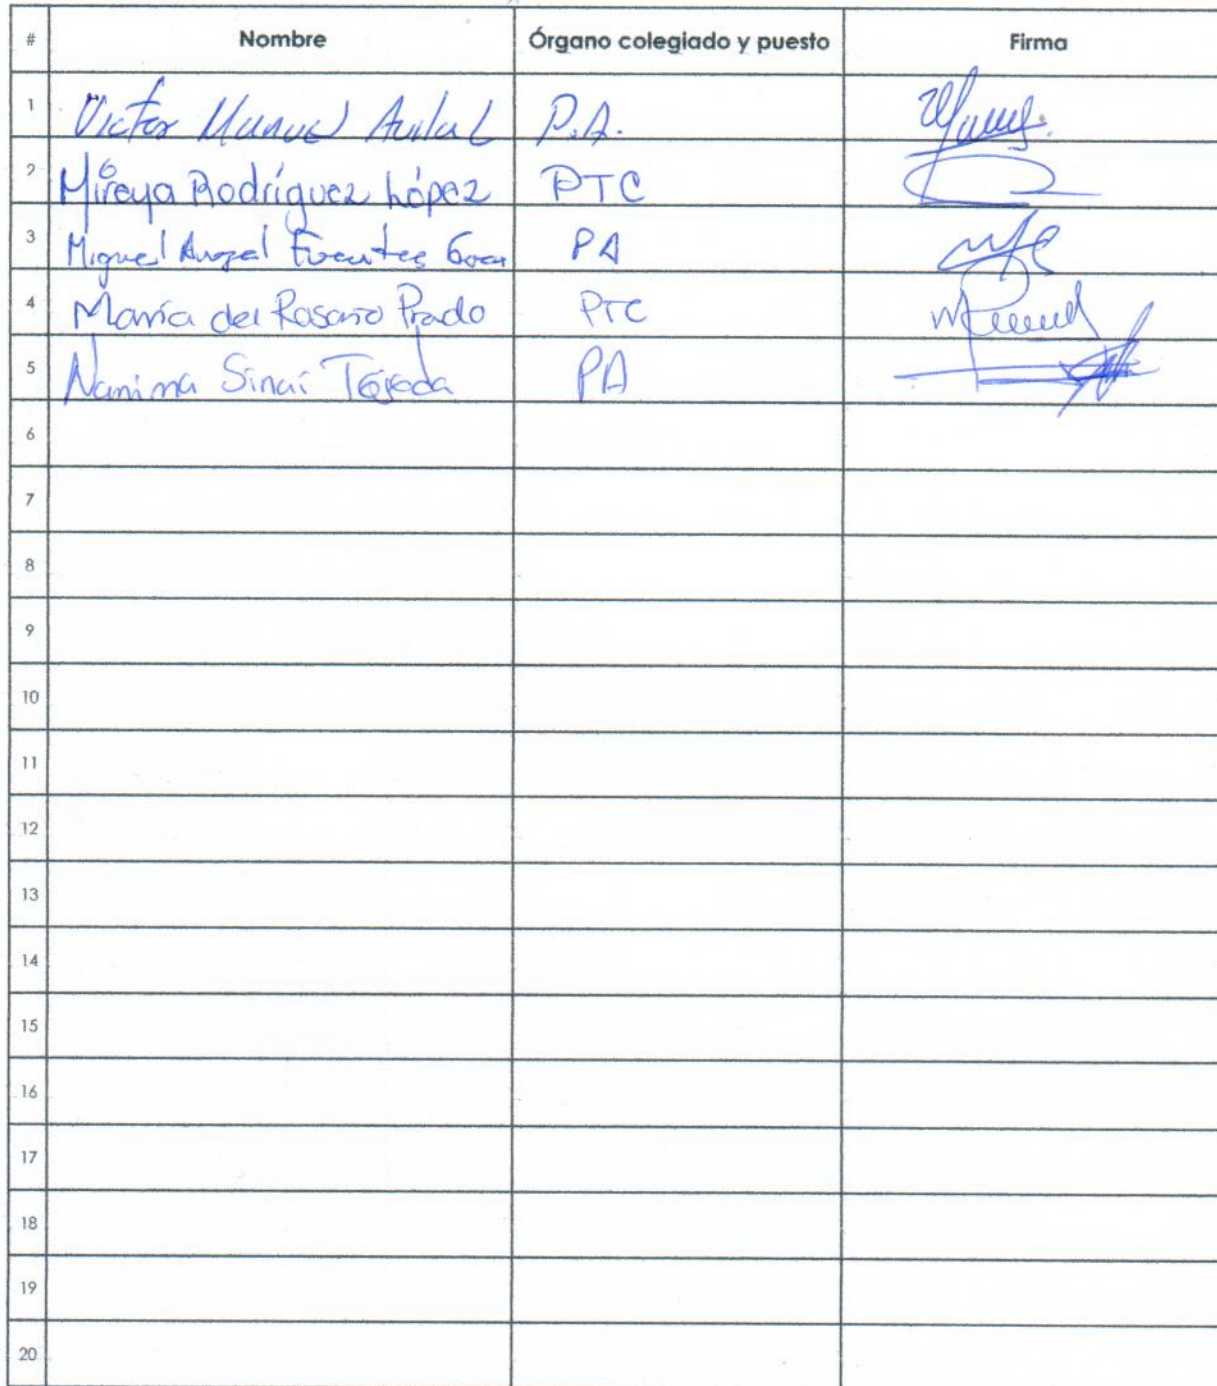 # Nombre Órgano colegiado y puesto Firma
1 Victor Manuel Avila L P.A.
2 Mireya Rodríguez López PTC
3 Miguel Angel Fuentes PA
4 María del Rosario Prado PTC
5 Nanima Sinaí Tejeda PA
6
7
8
9
10
11
12
13
14
15
16
17
18
19
20